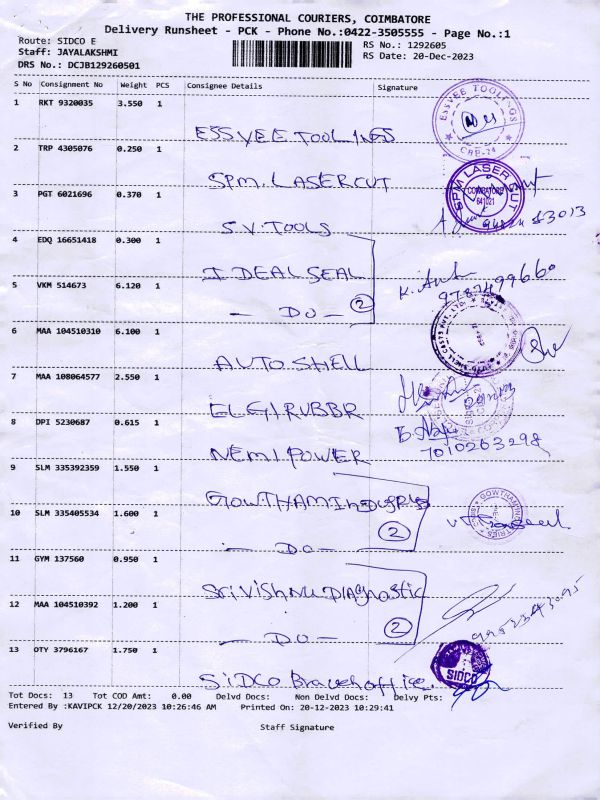 THE PROFESSIONAL COURIERS, COIMBATORE
Delivery Runsheet - PCK - Phone No.:0422-3505555 - Page No.:1
Route: SIDCO E
RS No.: 1292605
Staff: JAYALAKSHMI
RS Date: 20-Dec-2023
DRS No.: DCJB129260501
S No Consignment No Weight PCS Consignee Details Signature
1 RKT 9320035 3.550 1
ESSVEE TOOLINGS
ESSVEE TOOLINGS
2 TRP 4305076 0.250 1
SPM. LASERCUT
SPM LASER CUT
COIMBATORE
641021
3 PGT 6021696 0.370 1
S.V. TOOLS
4 EDQ 16651418 0.300 1
IDEAL SEAL
5 VKM 514673 6.120 1
- DO -
2
6 MAA 104510310 6.100 1
AUTO SHELL
7 MAA 108064577 2.550 1
ELGI RUBBR
8 DPI 5230687 0.615 1
NEMI POWER
7010263298
9 SLM 335392359 1.550 1
GOWTHAM INDUSRIS
10 SLM 335405534 1.600 1
- DO -
2
11 GYM 137560 0.950 1
Sri Vishnu Diagnostic
12 MAA 104510392 1.200 1
- DO -
2
13 OTY 3796167 1.750 1
SiDCO Branch office.
SIDCO
Tot Docs: 13 Tot COD Amt: 0.00 Delvd Docs: Non Delvd Docs: Delvy Pts:
Entered By :KAVIPCK 12/20/2023 10:26:46 AM Printed On: 20-12-2023 10:29:41
Verified By Staff Signature